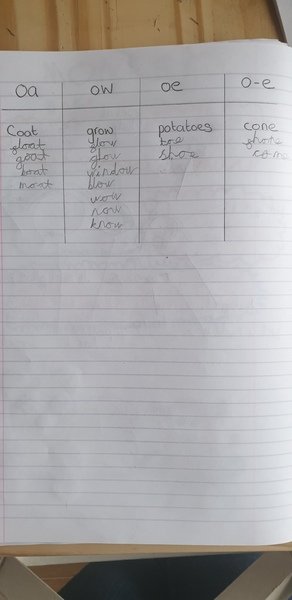 oa ow oe o-e
Coat grow potatoes cone
float flow toe phone
goat glow shoe come
boat window
moat blow
wow
now
know